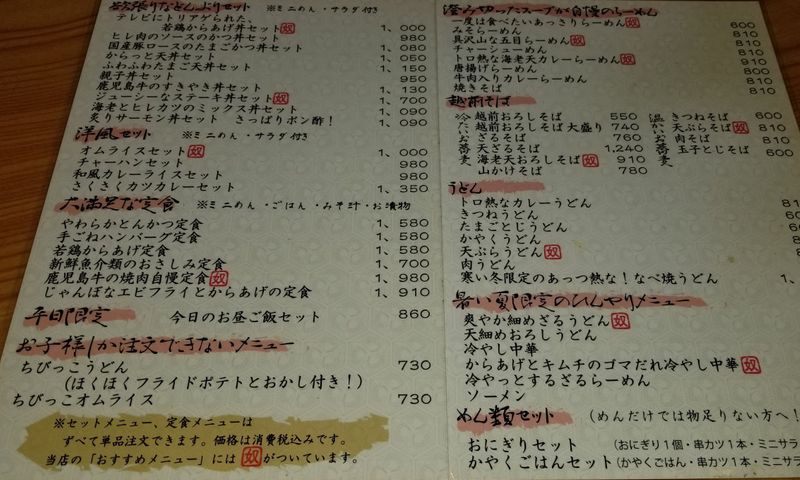 欲張りなどんぶりセット ※ミニめん・サラダ付き
テレビにトリアゲられた、
若鶏からあげ丼セット 奴 1、000
ヒレ肉のソースのかつ丼セット 980
国産豚ロースのたまごかつ丼セット 1、080
からっと天丼セット 1、050
ふわふわたまご天丼セット 1、150
親子丼セット 950
鹿児島牛のすきやき丼セット 1、130
ジューシーなステーキ丼セット 奴 1、700
海老とヒレカツのミックス丼セット 1、090
炙りサーモン丼セット さっぱりポン酢! 1、090
洋風セット ※ミニめん・サラダ付き
オムライスセット 奴 1、000
チャーハンセット 980
和風カレーライスセット 980
さくさくカツカレーセット 1、350
大満足な定食 ※ミニめん・ごはん・みそ汁・お漬物
やわらかとんかつ定食 1、580
手ごねハンバーグ定食 1、580
若鶏からあげ定食 1、580
新鮮魚介類のおさしみ定食 1、700
鹿児島牛の焼肉自慢定食 奴 1、910
じゃんぼなエビフライとからあげの定食 1、910
平日限定 今日のお昼ご飯セット 860
お子様しか注文できないメニュー
ちびっこうどん 730
(ほくほくフライドポテトとおかし付き!)
ちびっこオムライス 730
※セットメニュー、定食メニューは
すべて単品注文できます。価格は消費税込みです。
当店の「おすすめメニュー」には 奴 がついています。
澄み切ったスープが自慢のらーめん
一度は食べたいあっさりらーめん 奴 600
みそらーめん 810
具沢山な五目らーめん 810
チャーシューめん 810
トロ熱な海老天カレーらーめん 奴 900
唐揚げらーめん 800
牛肉入りカレーらーめん 810
焼きそば 810
越前そば
冷たいお蕎麦
越前おろしそば 550
越前おろしそば大盛り 740
ざるそば 760
天ざるそば 1,240
海老天おろしそば 奴 910
山かけそば 780
温かいお蕎麦
きつねそば 600
天ぷらそば 奴 810
肉そば 810
玉子とじそば 600
うどん
トロ熱なカレーうどん
きつねうどん
たまごとじうどん
かやくうどん
天ぷらうどん 奴
肉うどん
寒い冬限定のあっつ熱な!なべ焼うどん
暑い夏限定のひんやりメニュー
爽やか細めざるうどん 奴
天細めおろしうどん
冷やし中華
からあげとキムチのゴマだれ冷やし中華 奴
冷やっとするざるらーめん
ソーメン
めん類セット (めんだけでは物足りない方へ!
おにぎりセット (おにぎり1個・串カツ1本・ミニサラ
かやくごはんセット (かやくごはん・串カツ1本・ミニサラ